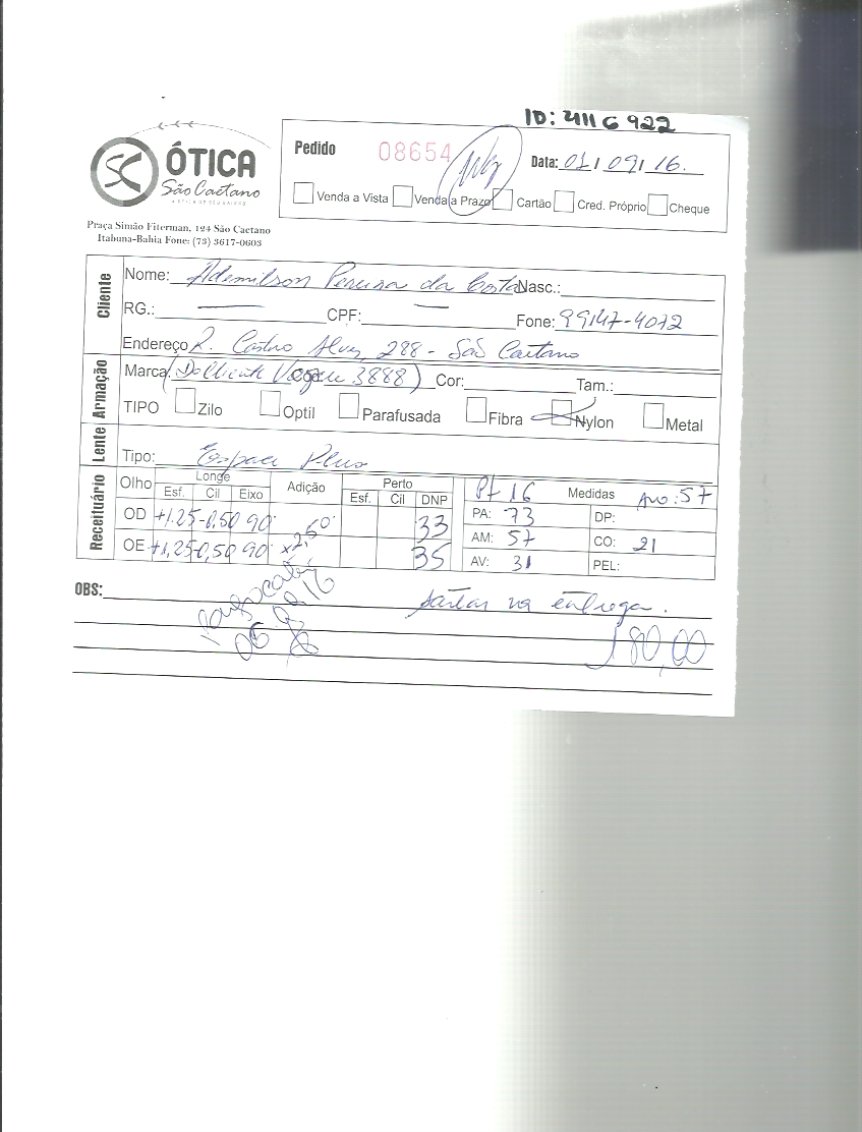 ID: 4116922
ÓTICA
São Caetano
Praça Simão Fiterman, 124 São Caetano
Itabuna-Bahia Fone: (73) 3617-0603
Pedido 08654 Data: 01/09/16.
Venda a Vista Venda a Prazo Cartão Cred. Próprio Cheque
Cliente
Nome: Ademilson Pereira da Costa Nasc.:
RG.: CPF: Fone: 99147-4072
Endereço R. Castro Alves, 288 - São Caetano
Armação
Marca: 3888) Cor: Tam.:
TIPO Zilo Optil Parafusada Fibra Nylon Metal
Lente
Tipo: Espace Plus
Receituário
Olho Longe Adição Perto Pt 16 Medidas Aro: 57
Esf. Cil Eixo Esf. Cil DNP
OD +1.25 -0.50 90° 33 PA: 73 DP:
OE +1,25 -0,50 90° x2,50 35 AM: 57 CO: 21
AV: 31 PEL:
OBS: na entrega.
180,00